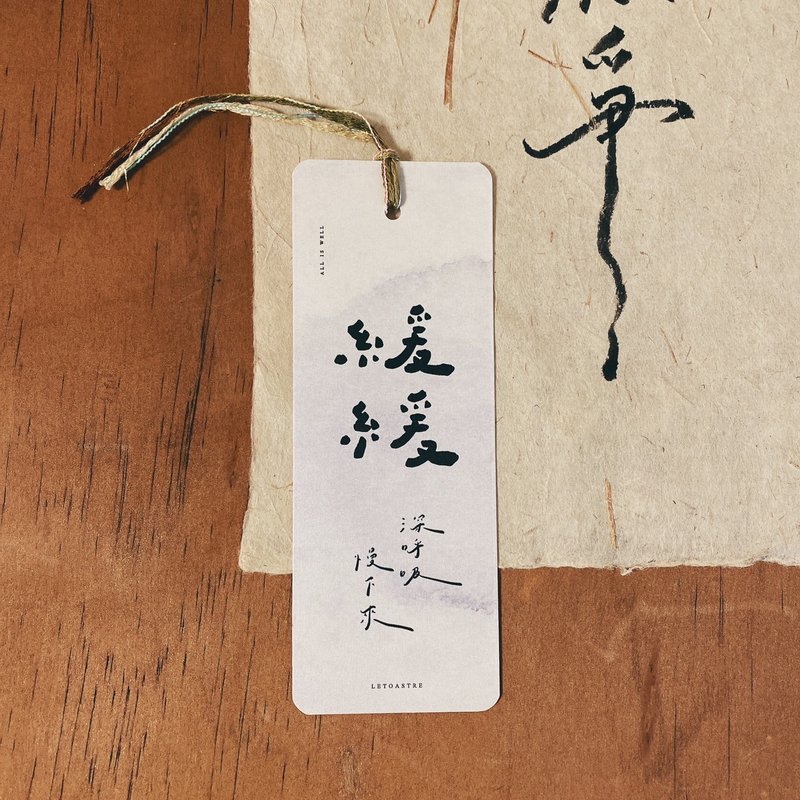 ALL IS WELL
緩緩
深呼吸
慢下來
LETOASTRE
爭